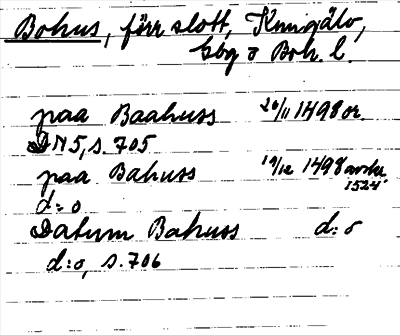 Bohus, förr slott, Kungälv,
Gbg o Boh. l.
paa Baahuss 20/11 1498 or.
DN 5, s. 705
paa Bahuss 19/12 1498 avskr.
1524
d:o
Datum Bahuss d:o
d:o, s. 706